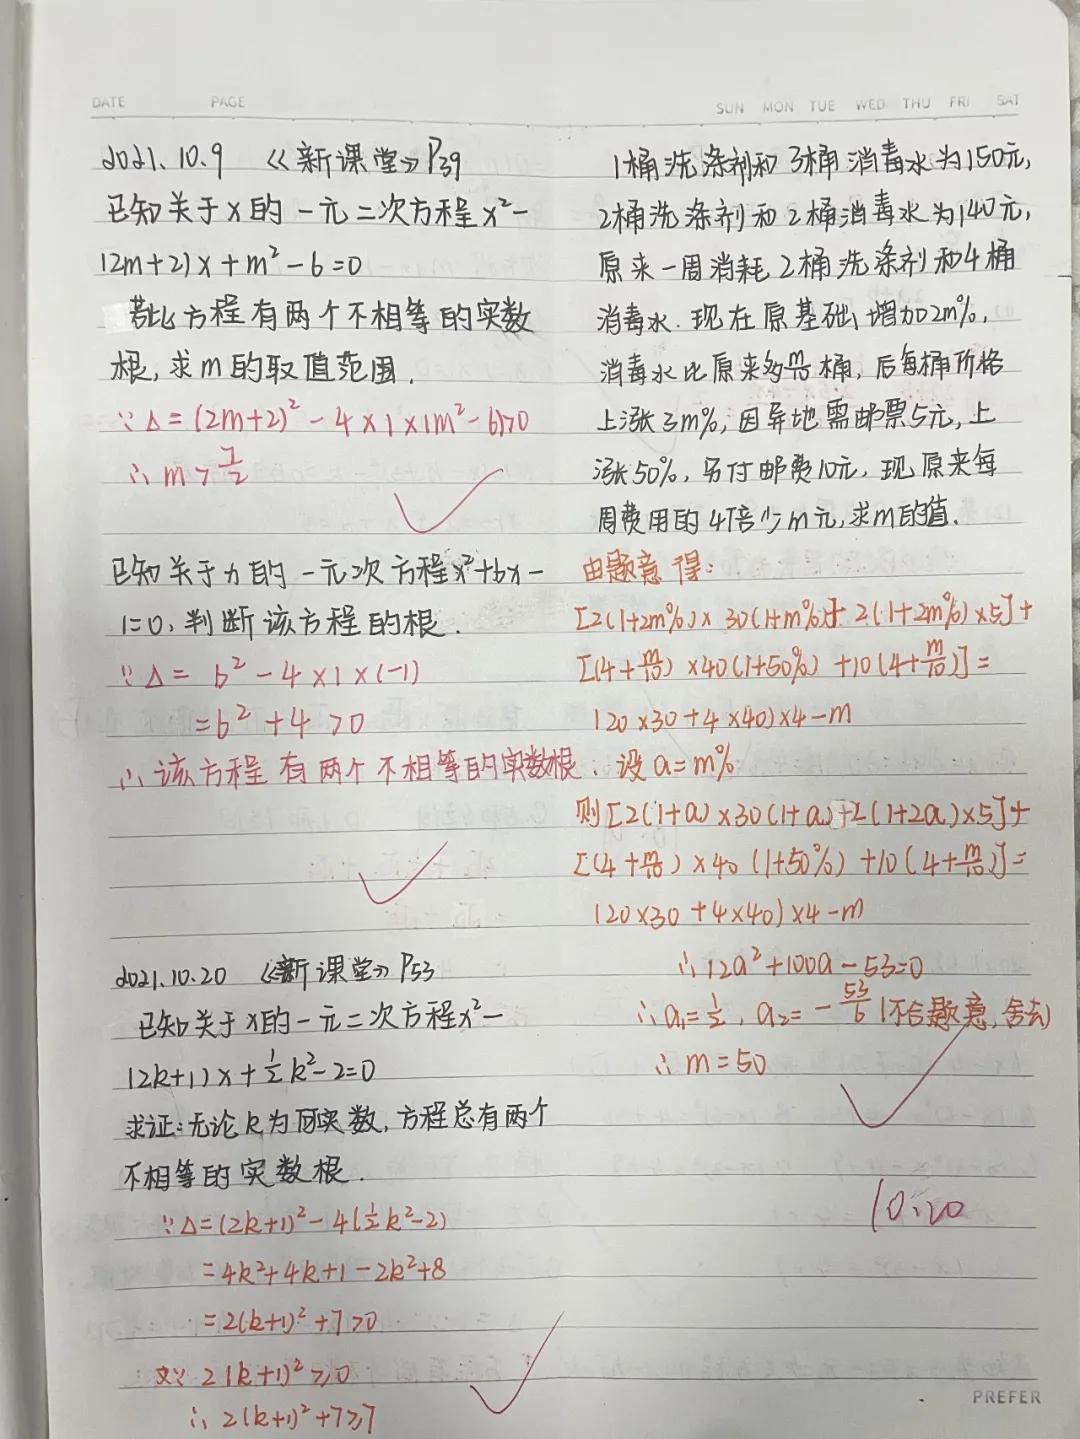 DATE PAGE
SUN MON TUE WED THU FRI SAT
2021.10.9 《新课堂》P39
已知关于x的一元二次方程x²-
(2m+2)x+m²-6=0
若此方程有两个不相等的实数
根,求m的取值范围.
∵Δ=(2m+2)²-4×1×(m²-6)>0
∴m>-7/2
已知关于x的一元二次方程x²+bx-
1=0,判断该方程的根.
∵Δ= b²-4×1×(-1)
=b²+4>0
∴该方程有两个不相等的实数根.
2021.10.20 《新课堂》P53
已知关于x的一元二次方程x²-
(2k+1)x+½k²-2=0
求证:无论k为何实数,方程总有两个
不相等的实数根.
∵Δ=(2k+1)²-4(½k²-2)
=4k²+4k+1-2k²+8
=2(k+1)²+7>0
又∵2(k+1)²≥0
∴2(k+1)²+7≥7
1桶洗涤剂和3桶消毒水为150元,
2桶洗涤剂和2桶消毒水为140元,
原来一周消耗2桶洗涤剂和4桶
消毒水.现在原基础增加2m%,
消毒水比原来多m/10桶,后每桶价格
上涨3m%,因异地需邮票5元,上
涨50%,另付邮费10元,现原来每
周费用的4倍少m元,求m的值.
由题意得:
[2(1+2m%)×30(1+m%)+2(1+2m%)×5]+
[(4+m/10)×40(1+50%)+10(4+m/10)]=
(20×30+4×40)×4-m
设a=m%
则[2(1+a)×30(1+a)+2(1+2a)×5]+
[(4+m/10)×40(1+50%)+10(4+m/10)]=
(20×30+4×40)×4-m
∴12a²+100a-53=0
∴a₁=½,a₂=-53/6(不合题意,舍去)
∴m=50
10.20
PREFER